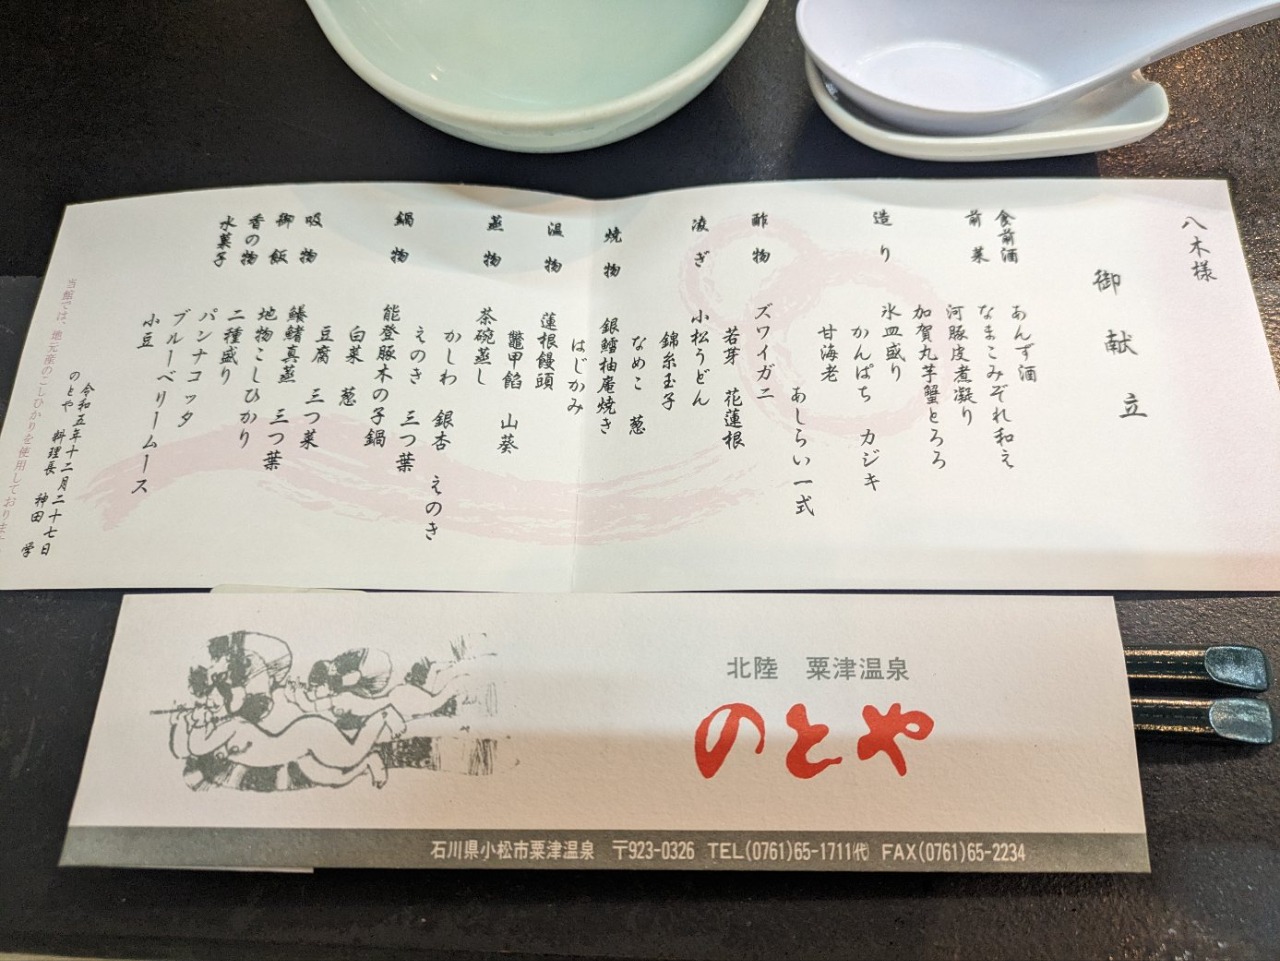 八木様
御献立
食前酒 あんず酒
前菜 なまこみぞれ和え
河豚皮煮凝り
加賀丸芋蟹とろろ
造り 氷皿盛り
かんぱち カジキ
甘海老
あしらい一式
酢物 ズワイガニ
若芽 花蓮根
凌ぎ 小松うどん
錦糸玉子
なめこ 葱
焼物 銀鱈柚庵焼き
はじかみ
温物 蓮根饅頭
鼈甲餡 山葵
蒸物 茶碗蒸し
かしわ 銀杏 えのき
えのき 三つ葉
鍋物 能登豚木の子鍋
白菜 葱
豆腐 三つ葉
吸物 鱶鰭真蒸 三つ葉
御飯 地物こしひかり
香の物 二種盛り
水菓子 パンナコッタ
ブルーベリームース
小豆
令和五年十二月二十七日
のとや 料理長 神田 学
当館では、地元産のこしひかりを使用しております。
北陸 粟津温泉
のとや
石川県小松市粟津温泉 〒923-0326 TEL(0761)65-1711㈹ FAX(0761)65-2234